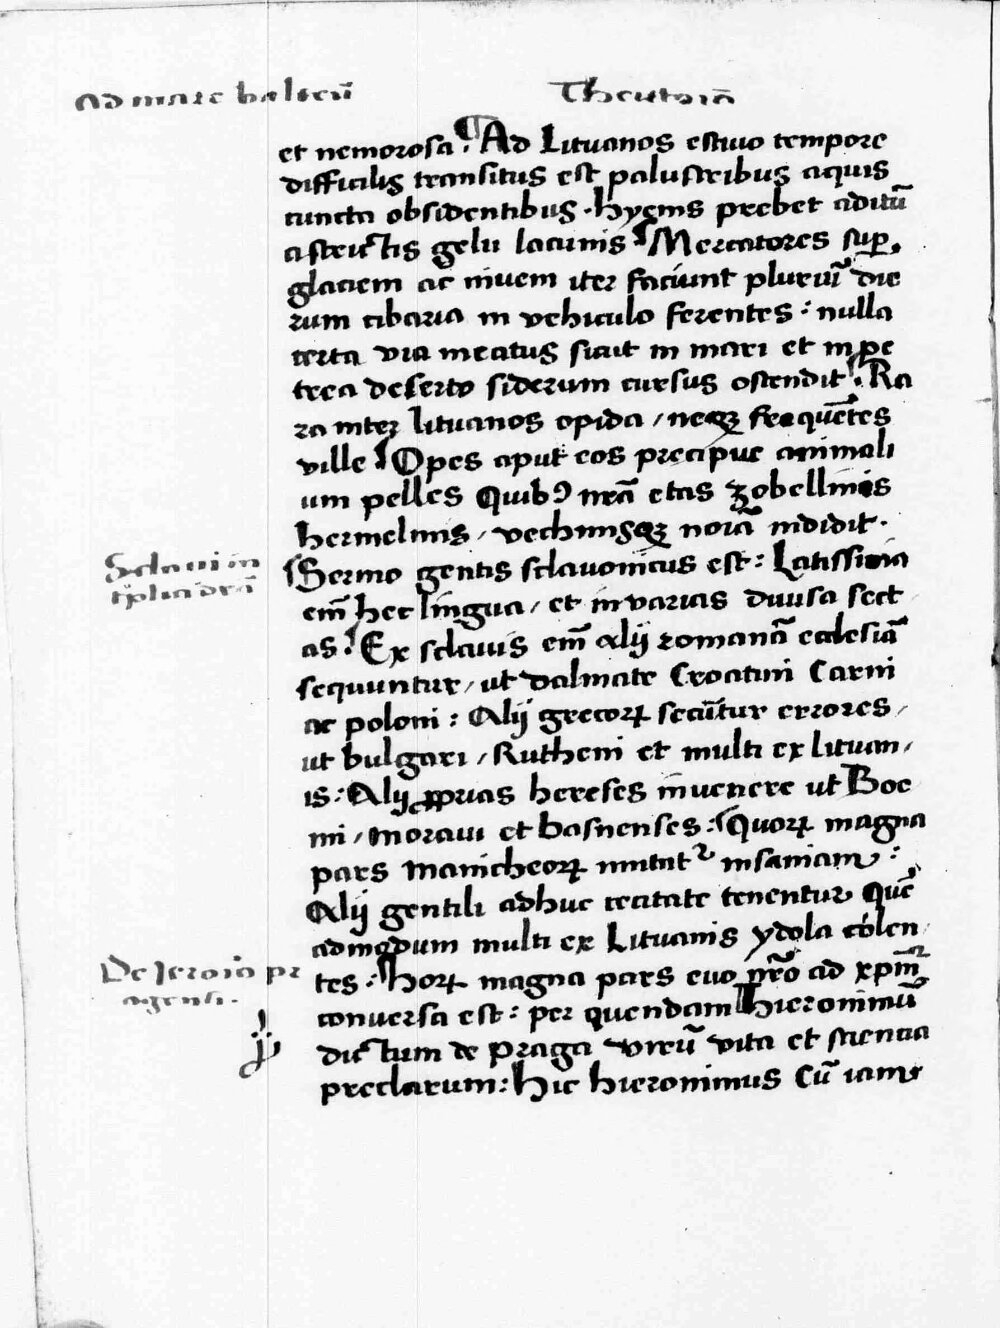 ad mare balteū Theutoīa
et nemorosa. ¶ Ad Lituanos estiuo tempore
difficilis transitus est palustribus aquis
cuncta obsidentibus. hyems prebet aditū
astrictis gelu lacunis Mercatores sup
glaciem ac niuem iter faciunt pluriū die
rum cibaria in vehiculo ferentes: nulla
certa via meatus sicut in mari et in pe
trea deserto siderum cursus ostendit. Ra
ra inter lituanos opida / neqꝫ frequētes
ville Opes aput eos precipue animali
um pelles Quibꝰ nrā etas zobellinis
hermelinis / vechinisqꝫ norā indidit.
Sclaui in
Sermo gentis sclauonicus est: Latissima
eīm hec lingua / et in varias diuisa sect
as. Ex sclauis eīm alij romanā ecclesiā
sequuntur / ut dalmate Croatini Carni
ac poloni: Alij grecoꝝ secūtur errores /
ut bulgari / Rutheni et multi ex lituan /
is: Alij ꝓprias hereses inuenere ut Boe
mi / moraui et bosnenses: Quoꝝ magna
pars manicheoꝝ imitatʳ insaniam:
Alij gentili adhuc cecitate tenentur Quē
admodum multi ex Lituanis ydola colen
De Jeroīo pr
tes: hoꝝ magna pars euo nr̄o ad xpm̄
agensi.
conuersa est: per quendam Hieronimū
dictum de praga virū vita et sciencia
preclarum: hic hieronimus Cū iam